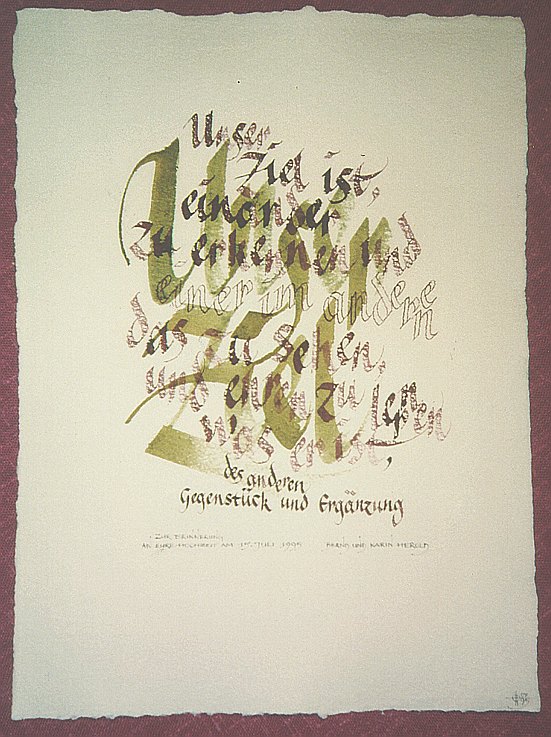 Unser Ziel
Unser
Ziel ist,
einander
zu erkennen und
einer im anderen
das zu sehen,
und ehren zu lernen
was er ist,
des anderen
Gegenstück und Ergänzung
ZUR ERINNERUNG
AN EURE HOCHZEIT AM JULI 1995 BERND UND KARIN HEROLD